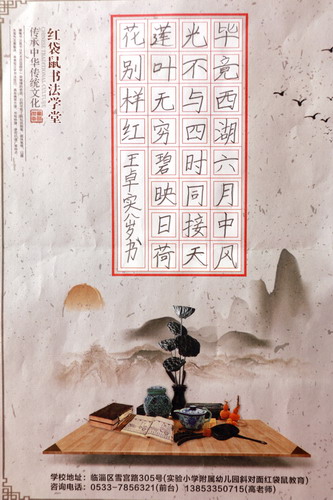 毕竟西湖六月中风
光不与四时同接天
莲叶无穷碧映日荷
花别样红 王卓实八岁书
红袋鼠书法学堂
传承中华传统文化
学校地址：临淄区雪宫路305号(实验小学附属幼儿园斜对面红袋鼠教育)
咨询电话：0533-7856321(前台) 13853350715(高老师)